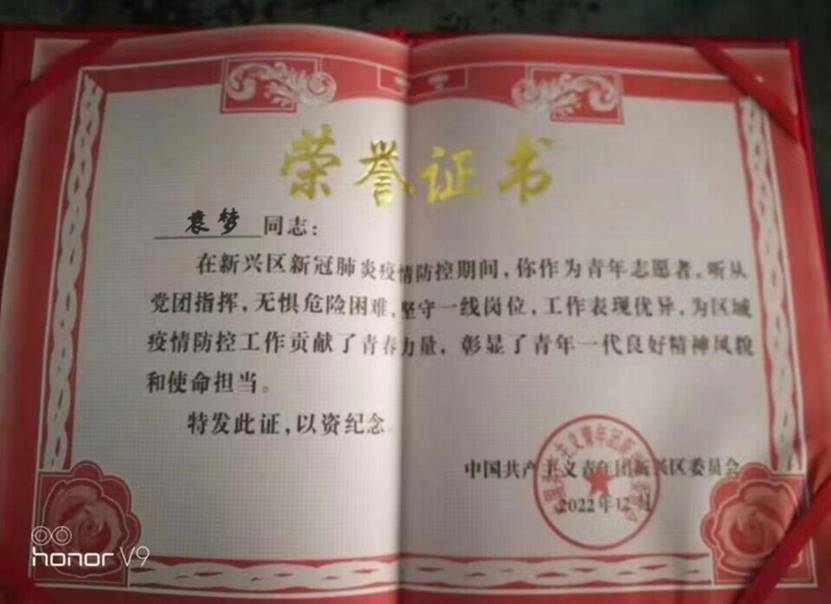 荣誉证书
袁梦 同志：
在新兴区新冠肺炎疫情防控期间，你作为青年志愿者，听从
党团指挥，无惧危险困难，坚守一线岗位，工作表现优异，为区域
疫情防控工作贡献了青春力量，彰显了青年一代良好精神风貌
和使命担当。
特发此证，以资纪念
中国共产主义青年团新兴区委员会
2022年12月
honor V9